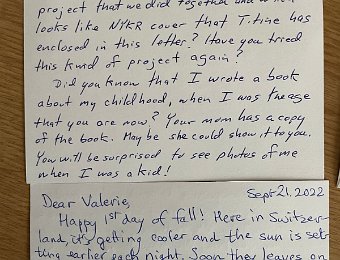 project that we did together and which
looks like NYKR cover that T.tine has
enclosed in this letter? Have you tried
this kind of project again?
Did you know that I wrote a book
about my childhood, when I was the age
that you are now? Your mom has a copy
of the book. Maybe she could show it to you.
You will be surprised to see photos of me
when I was a kid!
Sept 21, 2022
Dear Valerie,
Happy 1st day of fall! Here in Switzer-
land, it's getting cooler and the sun is set-
ting earlier each night. Soon the leaves on